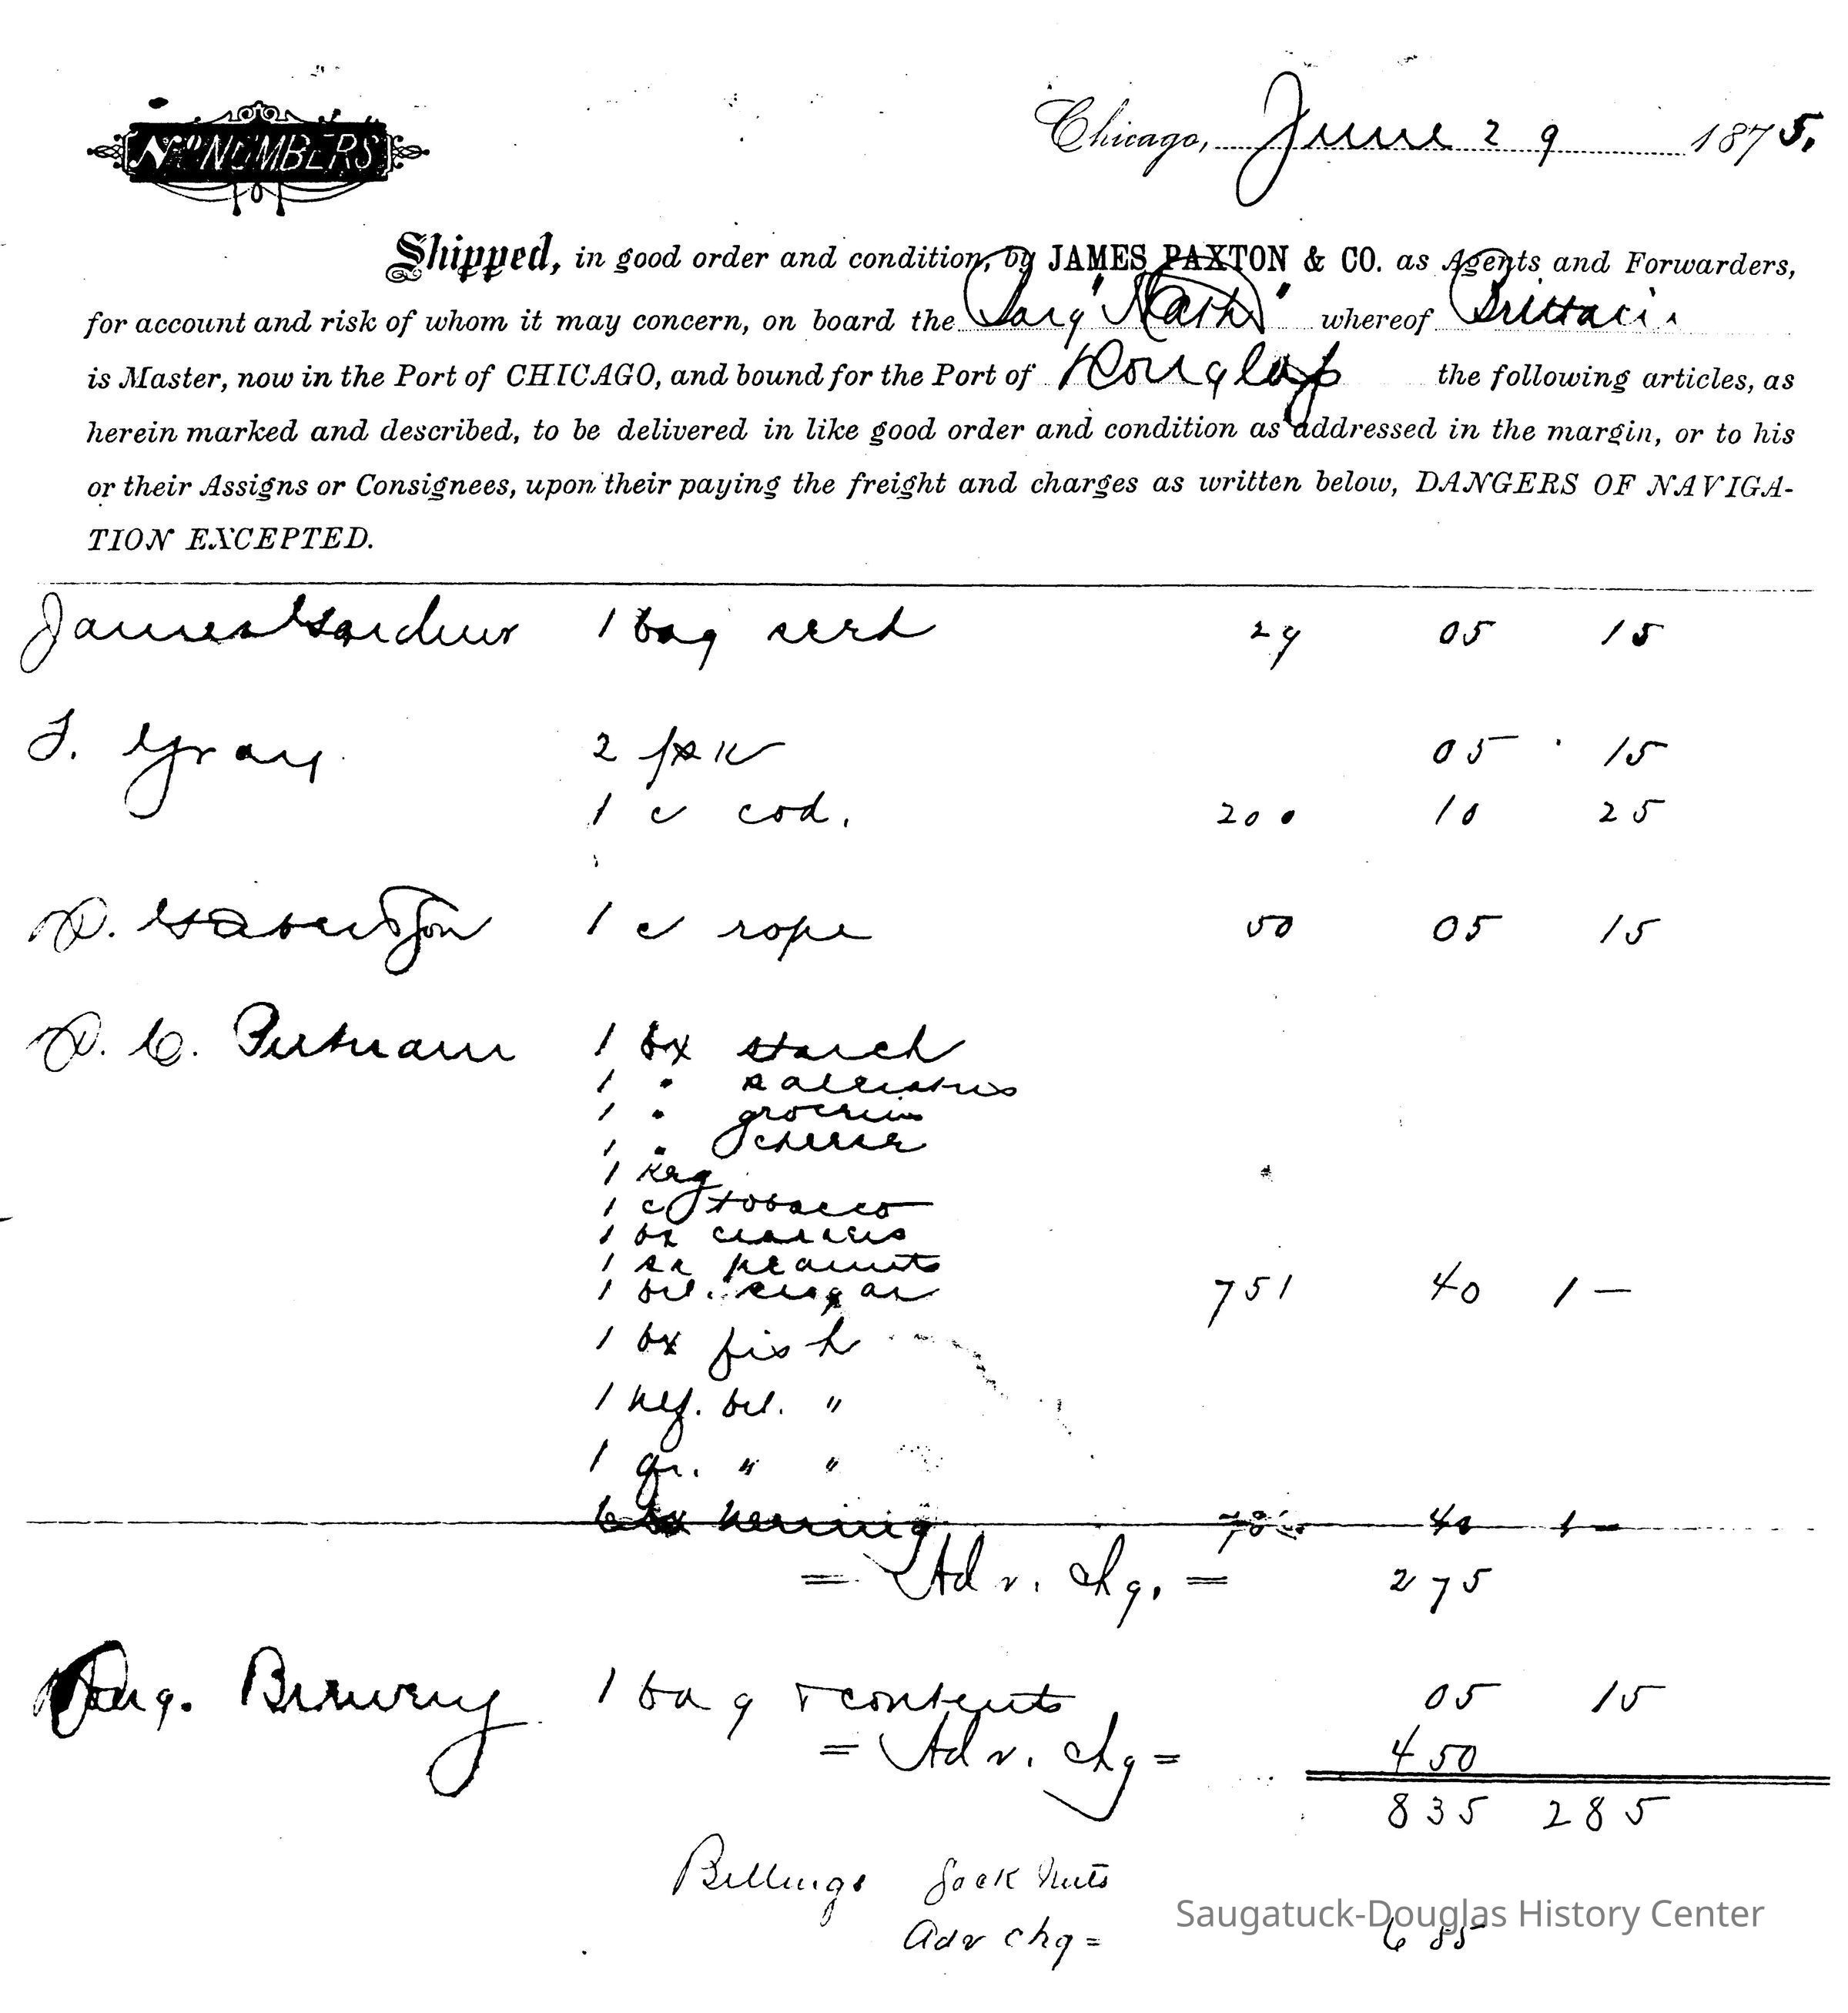 Nº NUMBERS
Chicago, June 29 1875.
Shipped, in good order and condition, by JAMES PAXTON & CO. as Agents and Forwarders,
for account and risk of whom it may concern, on board the " " whereof
is Master, now in the Port of CHICAGO, and bound for the Port of Douglas the following articles, as
herein marked and described, to be delivered in like good order and condition as addressed in the margin, or to his
or their Assigns or Consignees, upon their paying the freight and charges as written below, DANGERS OF NAVIGA-
TION EXCEPTED.
James Gardner 1 bag seed 29 05 15
F. Gray 2 pk 05 15
1 c cod. 200 10 25
D. 1 c rope 50 05 15
D. C. Putnam 1 bx starch
1 " saleratus
1 " groceries
1 " cheese
1 keg
1 c tobacco
1 bx crackers
1 sk peanuts
1 bbl. sugar 751 40 1 —
1 bx fish
1 hlf. bbl. "
1 qr. " "
6 bx herring 40 1 —
= Adv. chg. = 275
Doug. Brewery 1 bag & contents 05 15
= Adv. chg = 450
835 285
Billings Sack Nuts
Adv chg = 6 85
Saugatuck-Douglas History Center